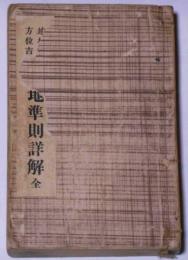 方位吉
地準則詳解 全